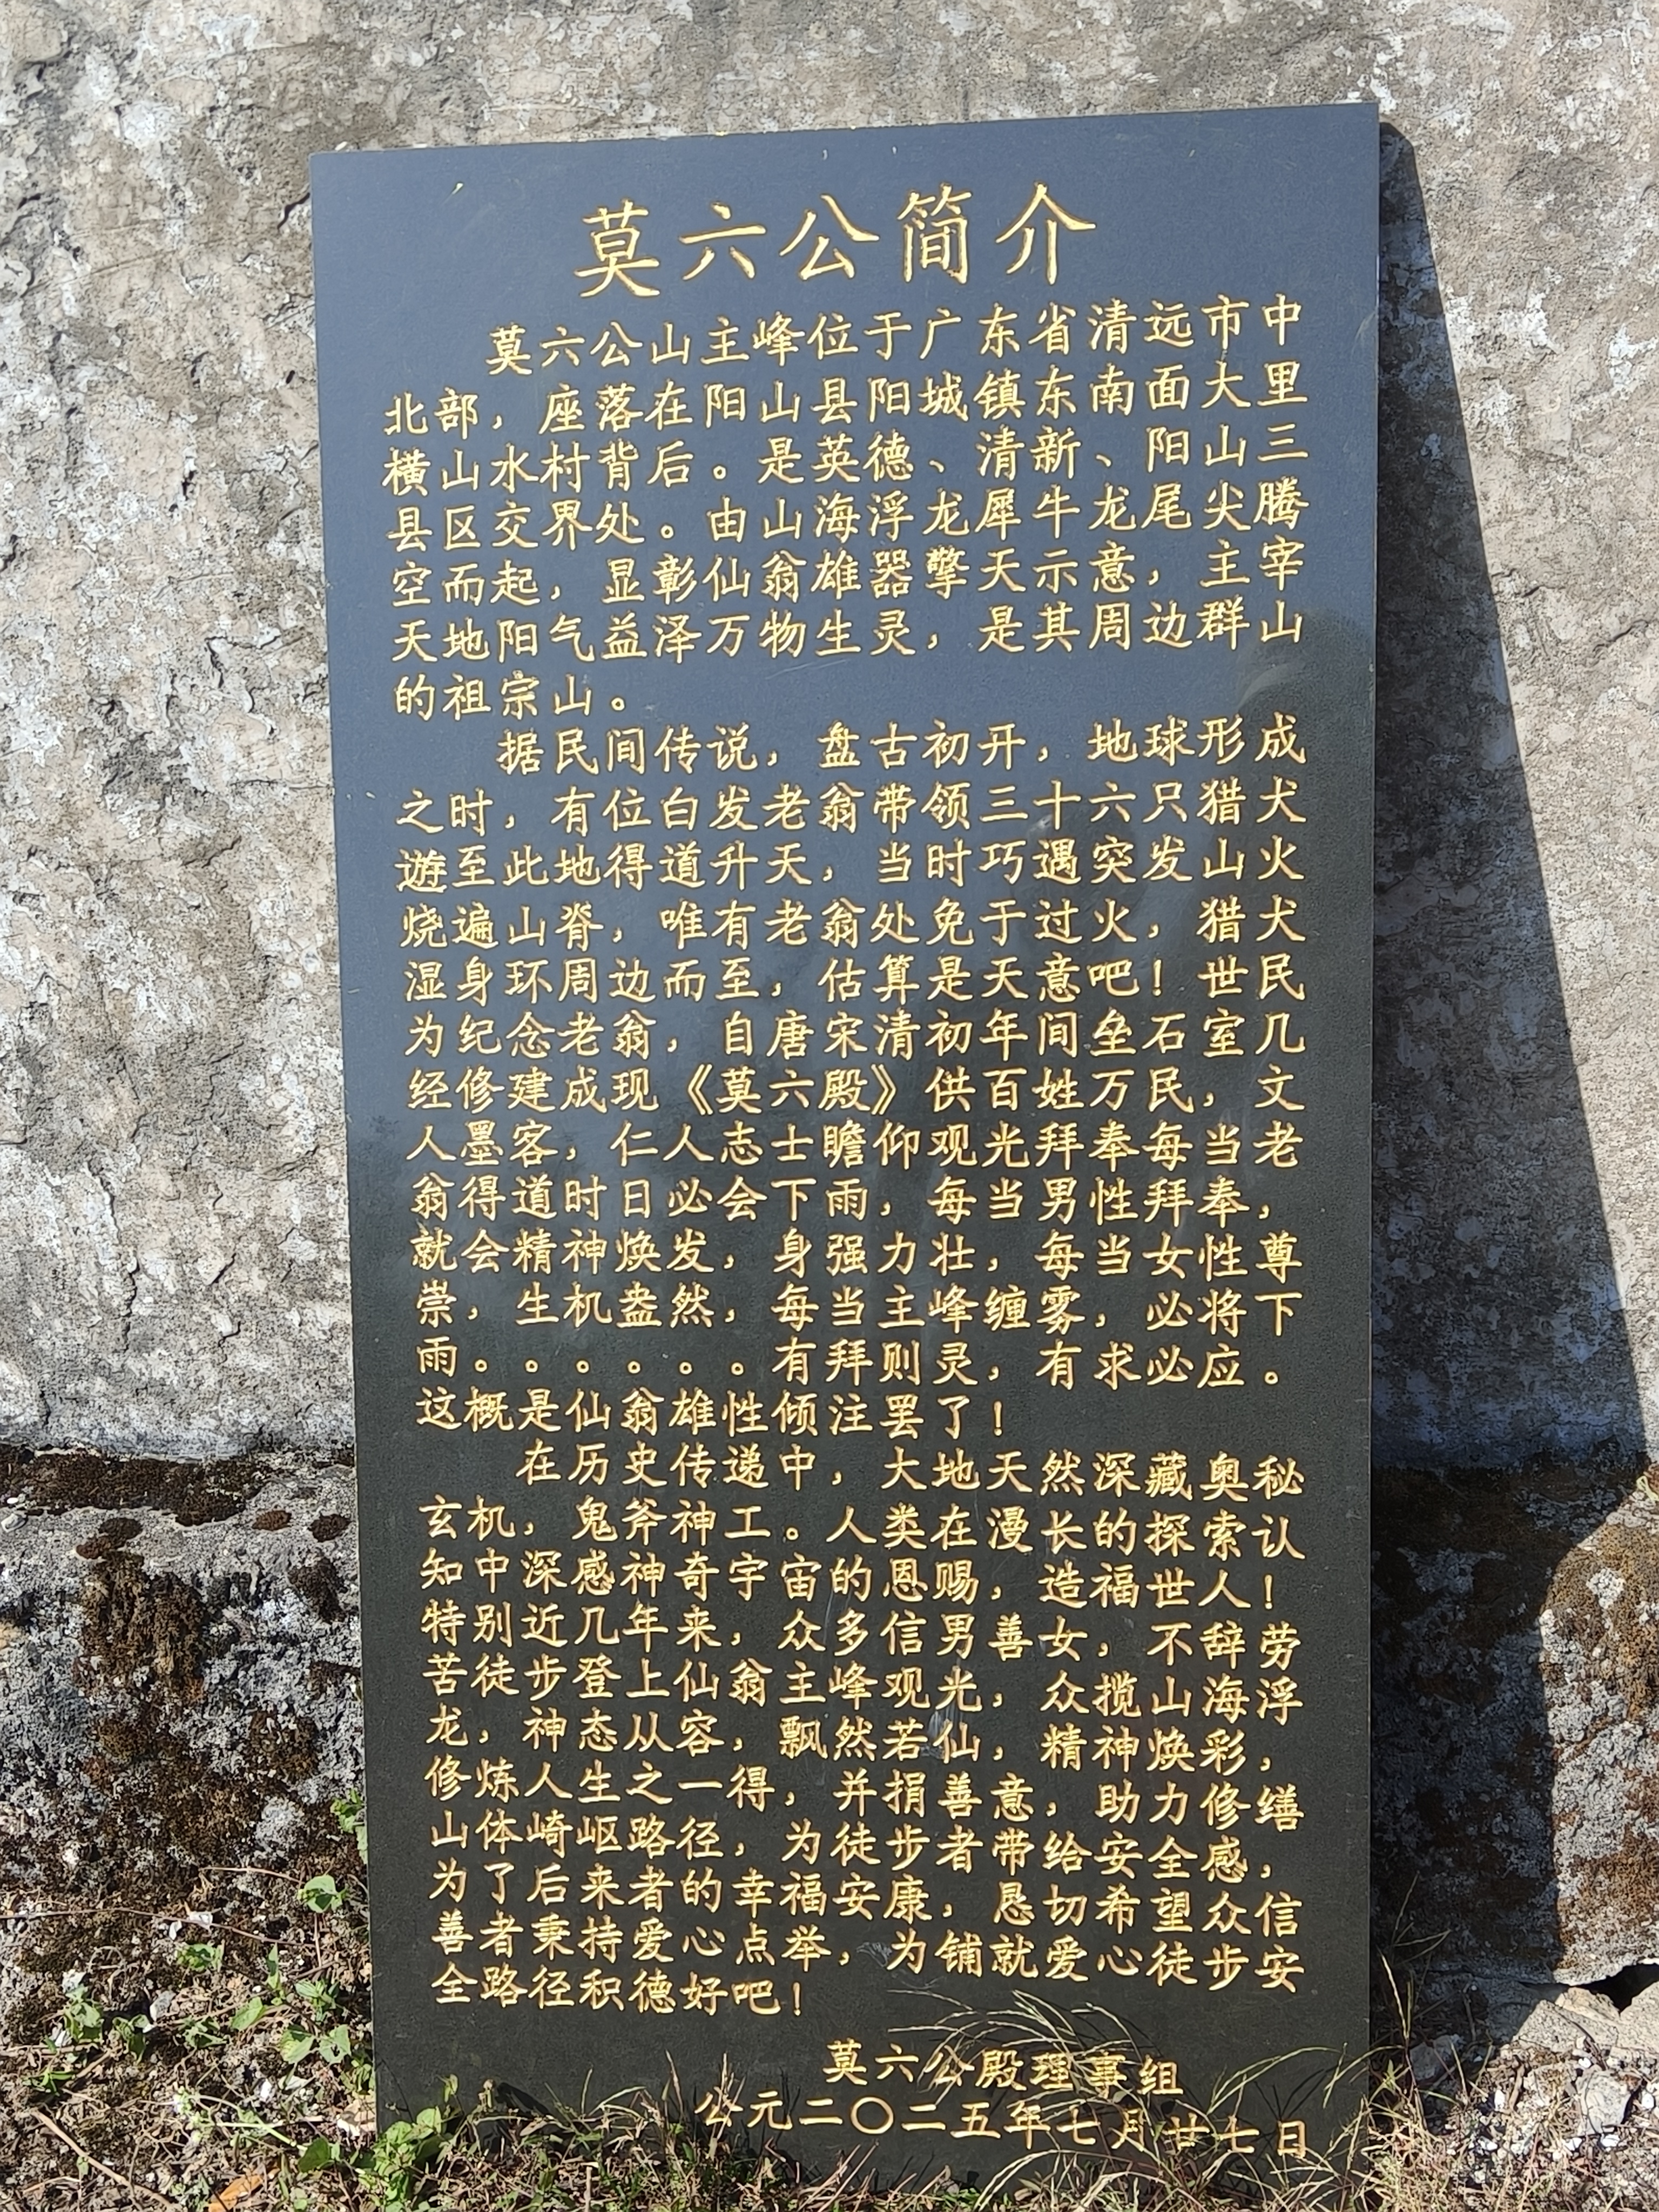 莫六公简介
莫六公山主峰位于广东省清远市中
北部，座落在阳山县阳城镇东南面大里
横山水村背后。是英德、清新、阳山三
县区交界处。由山海浮龙犀牛龙尾尖腾
空而起，显彰仙翁雄器擎天示意，主宰
天地阳气益泽万物生灵，是其周边群山
的祖宗山。
据民间传说，盘古初开，地球形成
之时，有位白发老翁带领三十六只猎犬
遊至此地得道升天，当时巧遇突发山火
烧遍山脊，唯有老翁处免于过火，猎犬
湿身环周边而至，估算是天意吧！世民
为纪念老翁，自唐宋清初年间垒石室几
经修建成现《莫六殿》供百姓万民，文
人墨客，仁人志士瞻仰观光拜奉每当老
翁得道时日必会下雨，每当男性拜奉，
就会精神焕发，身强力壮，每当女性尊
崇，生机盎然，每当主峰缠雾，必将下
雨。。。。。。有拜则灵，有求必应。
这概是仙翁雄性倾注罢了！
在历史传递中，大地天然深藏奥秘
玄机，鬼斧神工。人类在漫长的探索认
知中深感神奇宇宙的恩赐，造福世人！
特别近几年来，众多信男善女，不辞劳
苦徒步登上仙翁主峰观光，众揽山海浮
龙，神态从容，飘然若仙，精神焕彩，
修炼人生之一得，并捐善意，助力修缮
山体崎岖路径，为徒步者带给安全感，
为了后来者的幸福安康，恳切希望众信
善者秉持爱心点举，为铺就爱心徒步安
全路径积德好吧！
莫六公殿理事组
公元二〇二五年七月廿七日